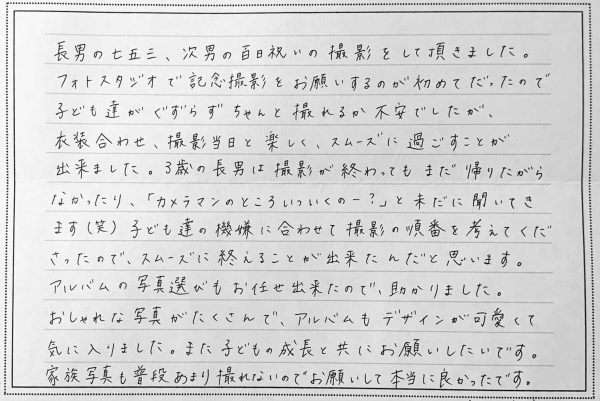 長男の七五三、次男の百日祝いの撮影をして頂きました。
フォトスタジオで記念撮影をお願いするのが初めてだったので
子ども達がぐずらずちゃんと撮れるか不安でしたが、
衣装合わせ、撮影当日と楽しく、スムーズに過ごすことが
出来ました。3歳の長男は撮影が終わってもまだ帰りたがら
なかったり、「カメラマンのところいついくのー?」と未だに聞いてき
ます(笑)子ども達の機嫌に合わせて撮影の順番を考えてくだ
さったので、スムーズに終えることが出来たんだと思います。
アルバムの写真選びもお任せ出来たので、助かりました。
おしゃれな写真がたくさんで、アルバムもデザインが可愛くて
気に入りました。また子どもの成長と共にお願いしたいです。
家族写真も普段あまり撮れないのでお願いして本当に良かったです。